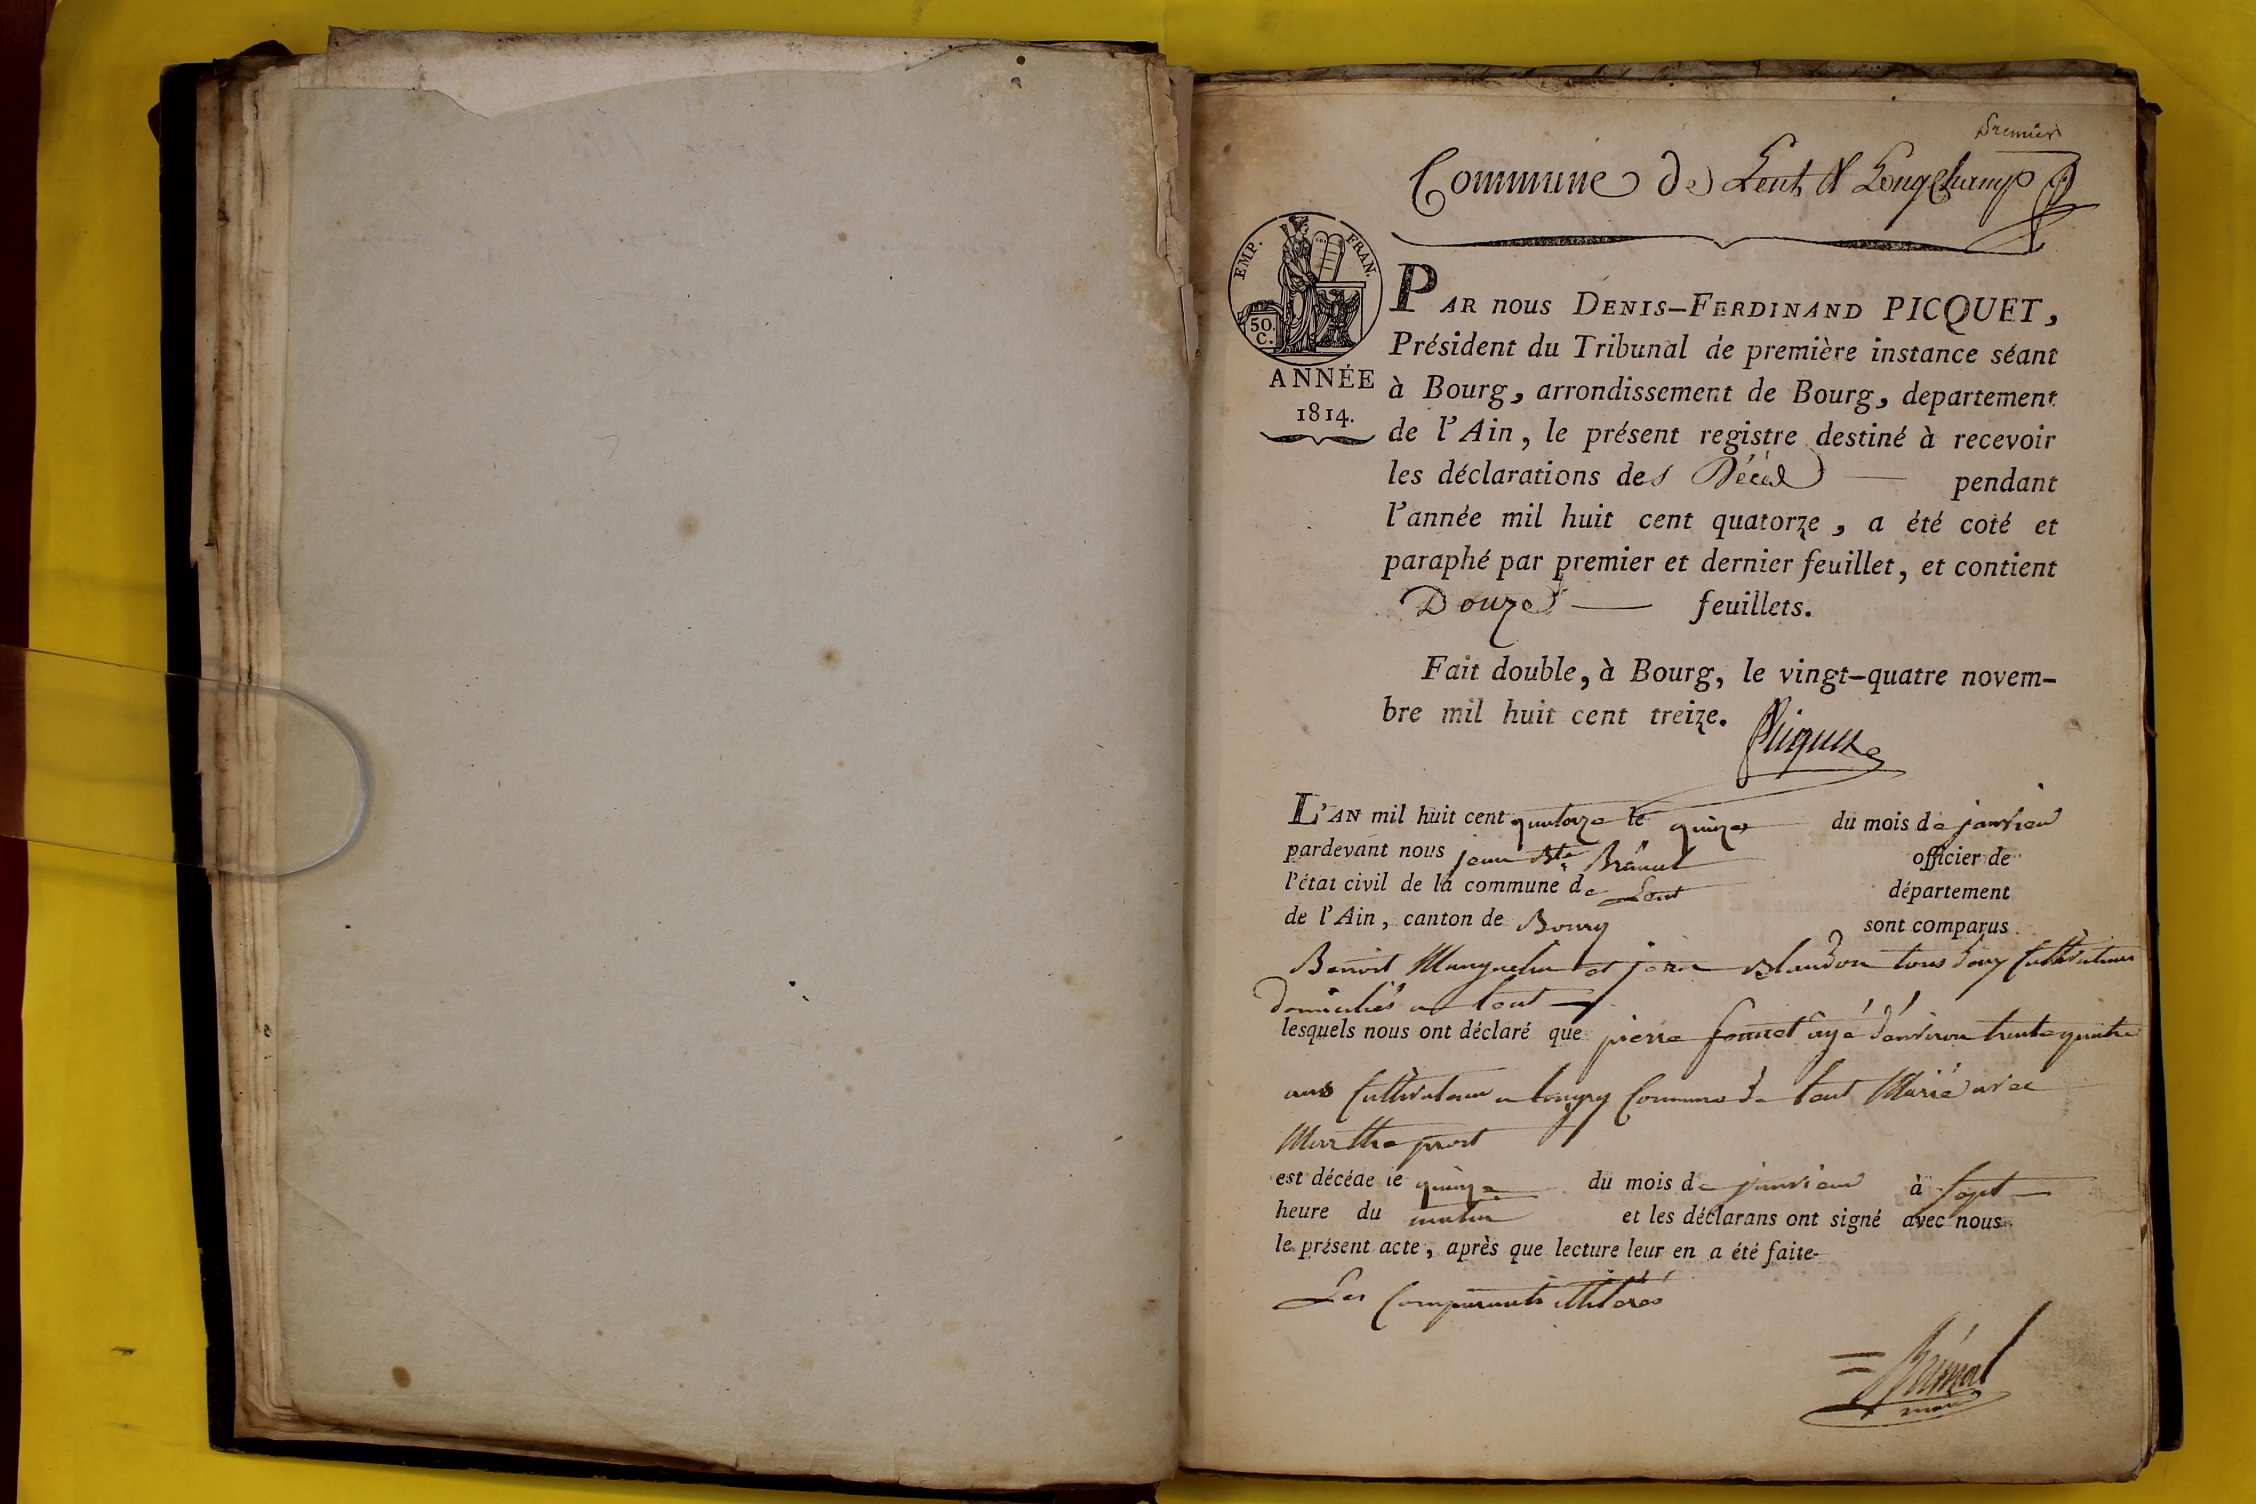 Premier
Commune de Lent & Longchamp
EMP. FRAN.
50.
C.
ANNÉE
1814.
PAR nous DENIS-FERDINAND PICQUET,
Président du Tribunal de première instance séant
à Bourg, arrondissement de Bourg, departement
de l'Ain, le présent registre destiné à recevoir
les déclarations des Décès pendant
l'année mil huit cent quatorze, a été coté et
paraphé par premier et dernier feuillet, et contient
Douze feuillets.
Fait double, à Bourg, le vingt-quatre novem-
bre mil huit cent treize.
Picquet
L'AN mil huit cent quatorze le quinze du mois de janvier
pardevant nous jean Bte officier de
l'état civil de la commune de Lent département
de l'Ain, canton de Bourg sont comparus
Benoit et jean Blandon tous deux Cultivateurs
domiciliés a Lent
lesquels nous ont déclaré que pierre agé d'environ trente quatre
ans Cultivateur a Commune de Lent Marié avec
Marthe prost
est décédé le quinze du mois de janvier à sept
heure du matin et les déclarans ont signé avec nous
le présent acte, après que lecture leur en a été faite
Les Comparants illiterés
maire